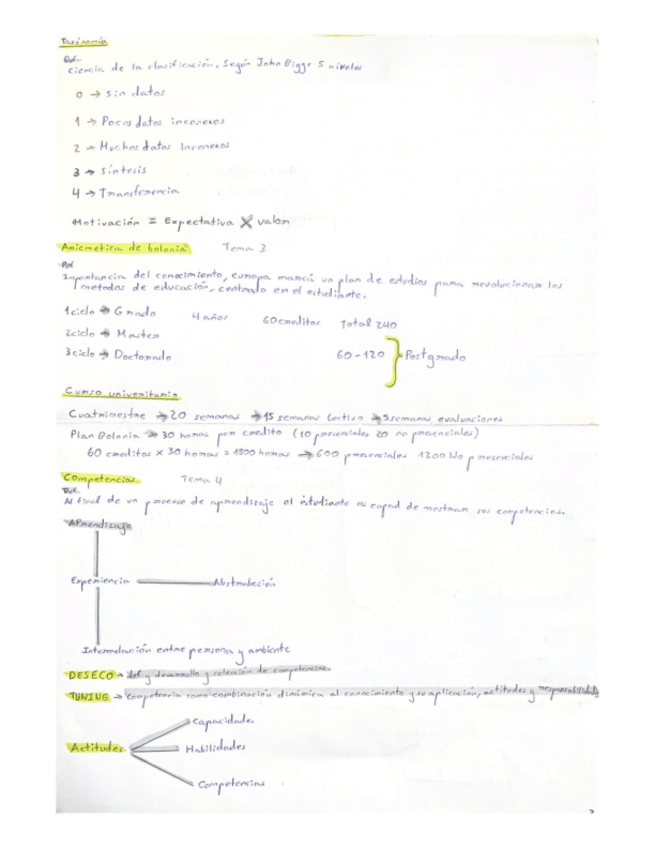 Taxonomía
Def.
Ciencia de la clasificación. Según John Biggs 5 niveles
0 → Sin datos
1 → Pocos datos inconexos
2 → Muchos datos inconexos
3 → Síntesis
4 → Transferencia
Motivación = Expectativa X valor
Aricmetica de bolonia Tema 3
Def.
Importancia del conocimiento, europa marcó un plan de estudios para revolucionar los
metodos de educación, centrado en el estudiante.
1 ciclo → Grado 4 años 60 creditos Total 240
2 ciclo → Master
3 ciclo → Doctorado 60-120 } Postgrado
Curso universitario
Cuatrimestre → 20 semanas → 15 semanas lectivo → 5 semanas evaluaciones
Plan Bolonia → 30 horas por credito (10 presenciales 20 no presenciales)
60 creditos x 30 horas = 1800 horas → 600 presenciales 1200 No presenciales
Competencias Tema 4
Def.
Al final de un proceso de aprendizaje el estudiante es capad de mostrar sus competencias.
Aprendizaje
Experiencia Abstrabción
Interrelación entre persona y ambiente
DESECO → def y desarrollo y selección de competencias
TUNING → Competencia como combinación dinámica al conocimiento y su aplicación, actitudes y responsabilidades
Capacidades
Actitudes Habilidades
Competencias